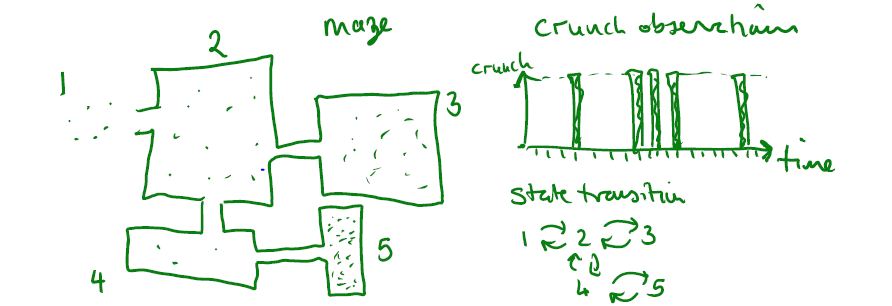 maze
1
2
3
4
5
Crunch observation
crunch
time
State transition
1 ⇄ 2 ⇄ 3
4 ⇄ 5